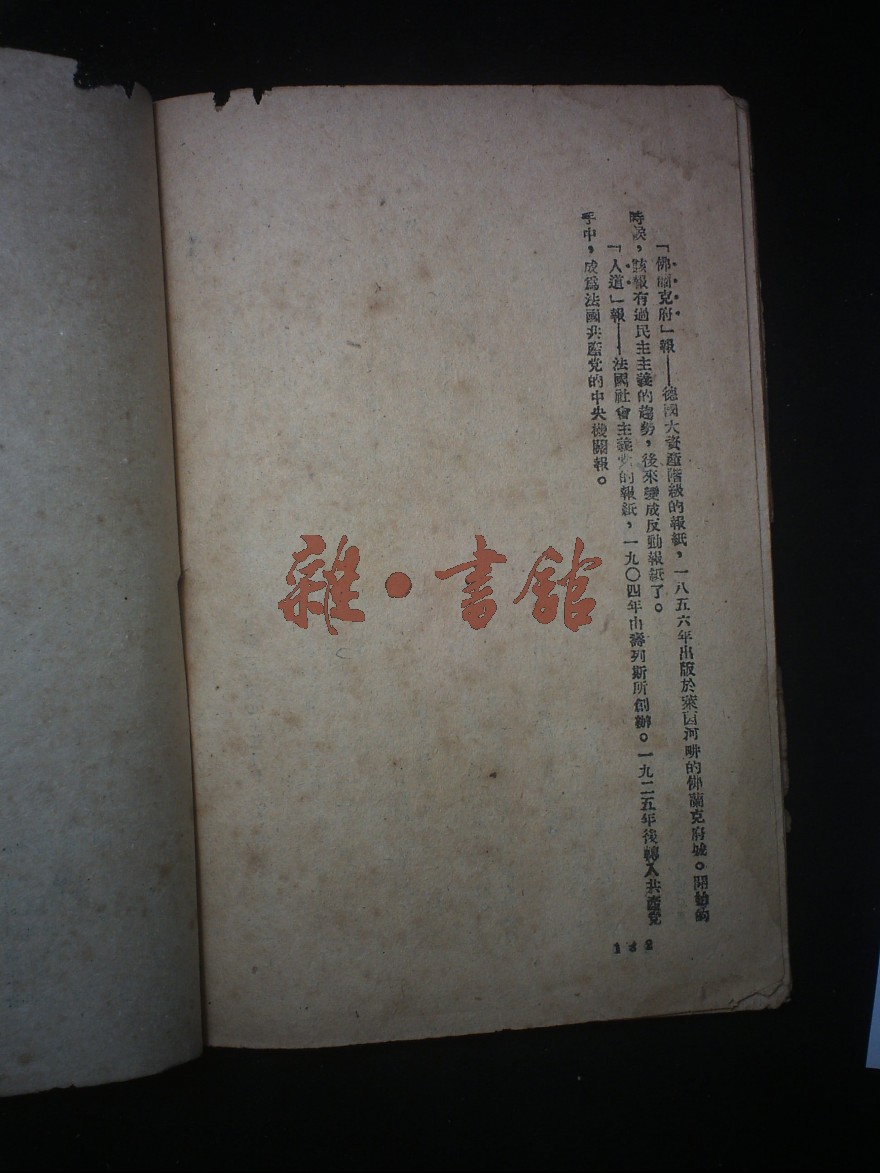 「佛蘭克府」報——德國大資產階級的報紙，一八五六年出版於萊茵河畔的佛蘭克府城。開始的
時候，該報有過民主主義的趨勢，後來變成反動報紙了。
「人道」報——法國社會主義党的報紙，一九〇四年由壽列斯所創辦。一九二五年後轉入共產党
手中，成爲法國共產党的中央機關報。
132
雜·書館